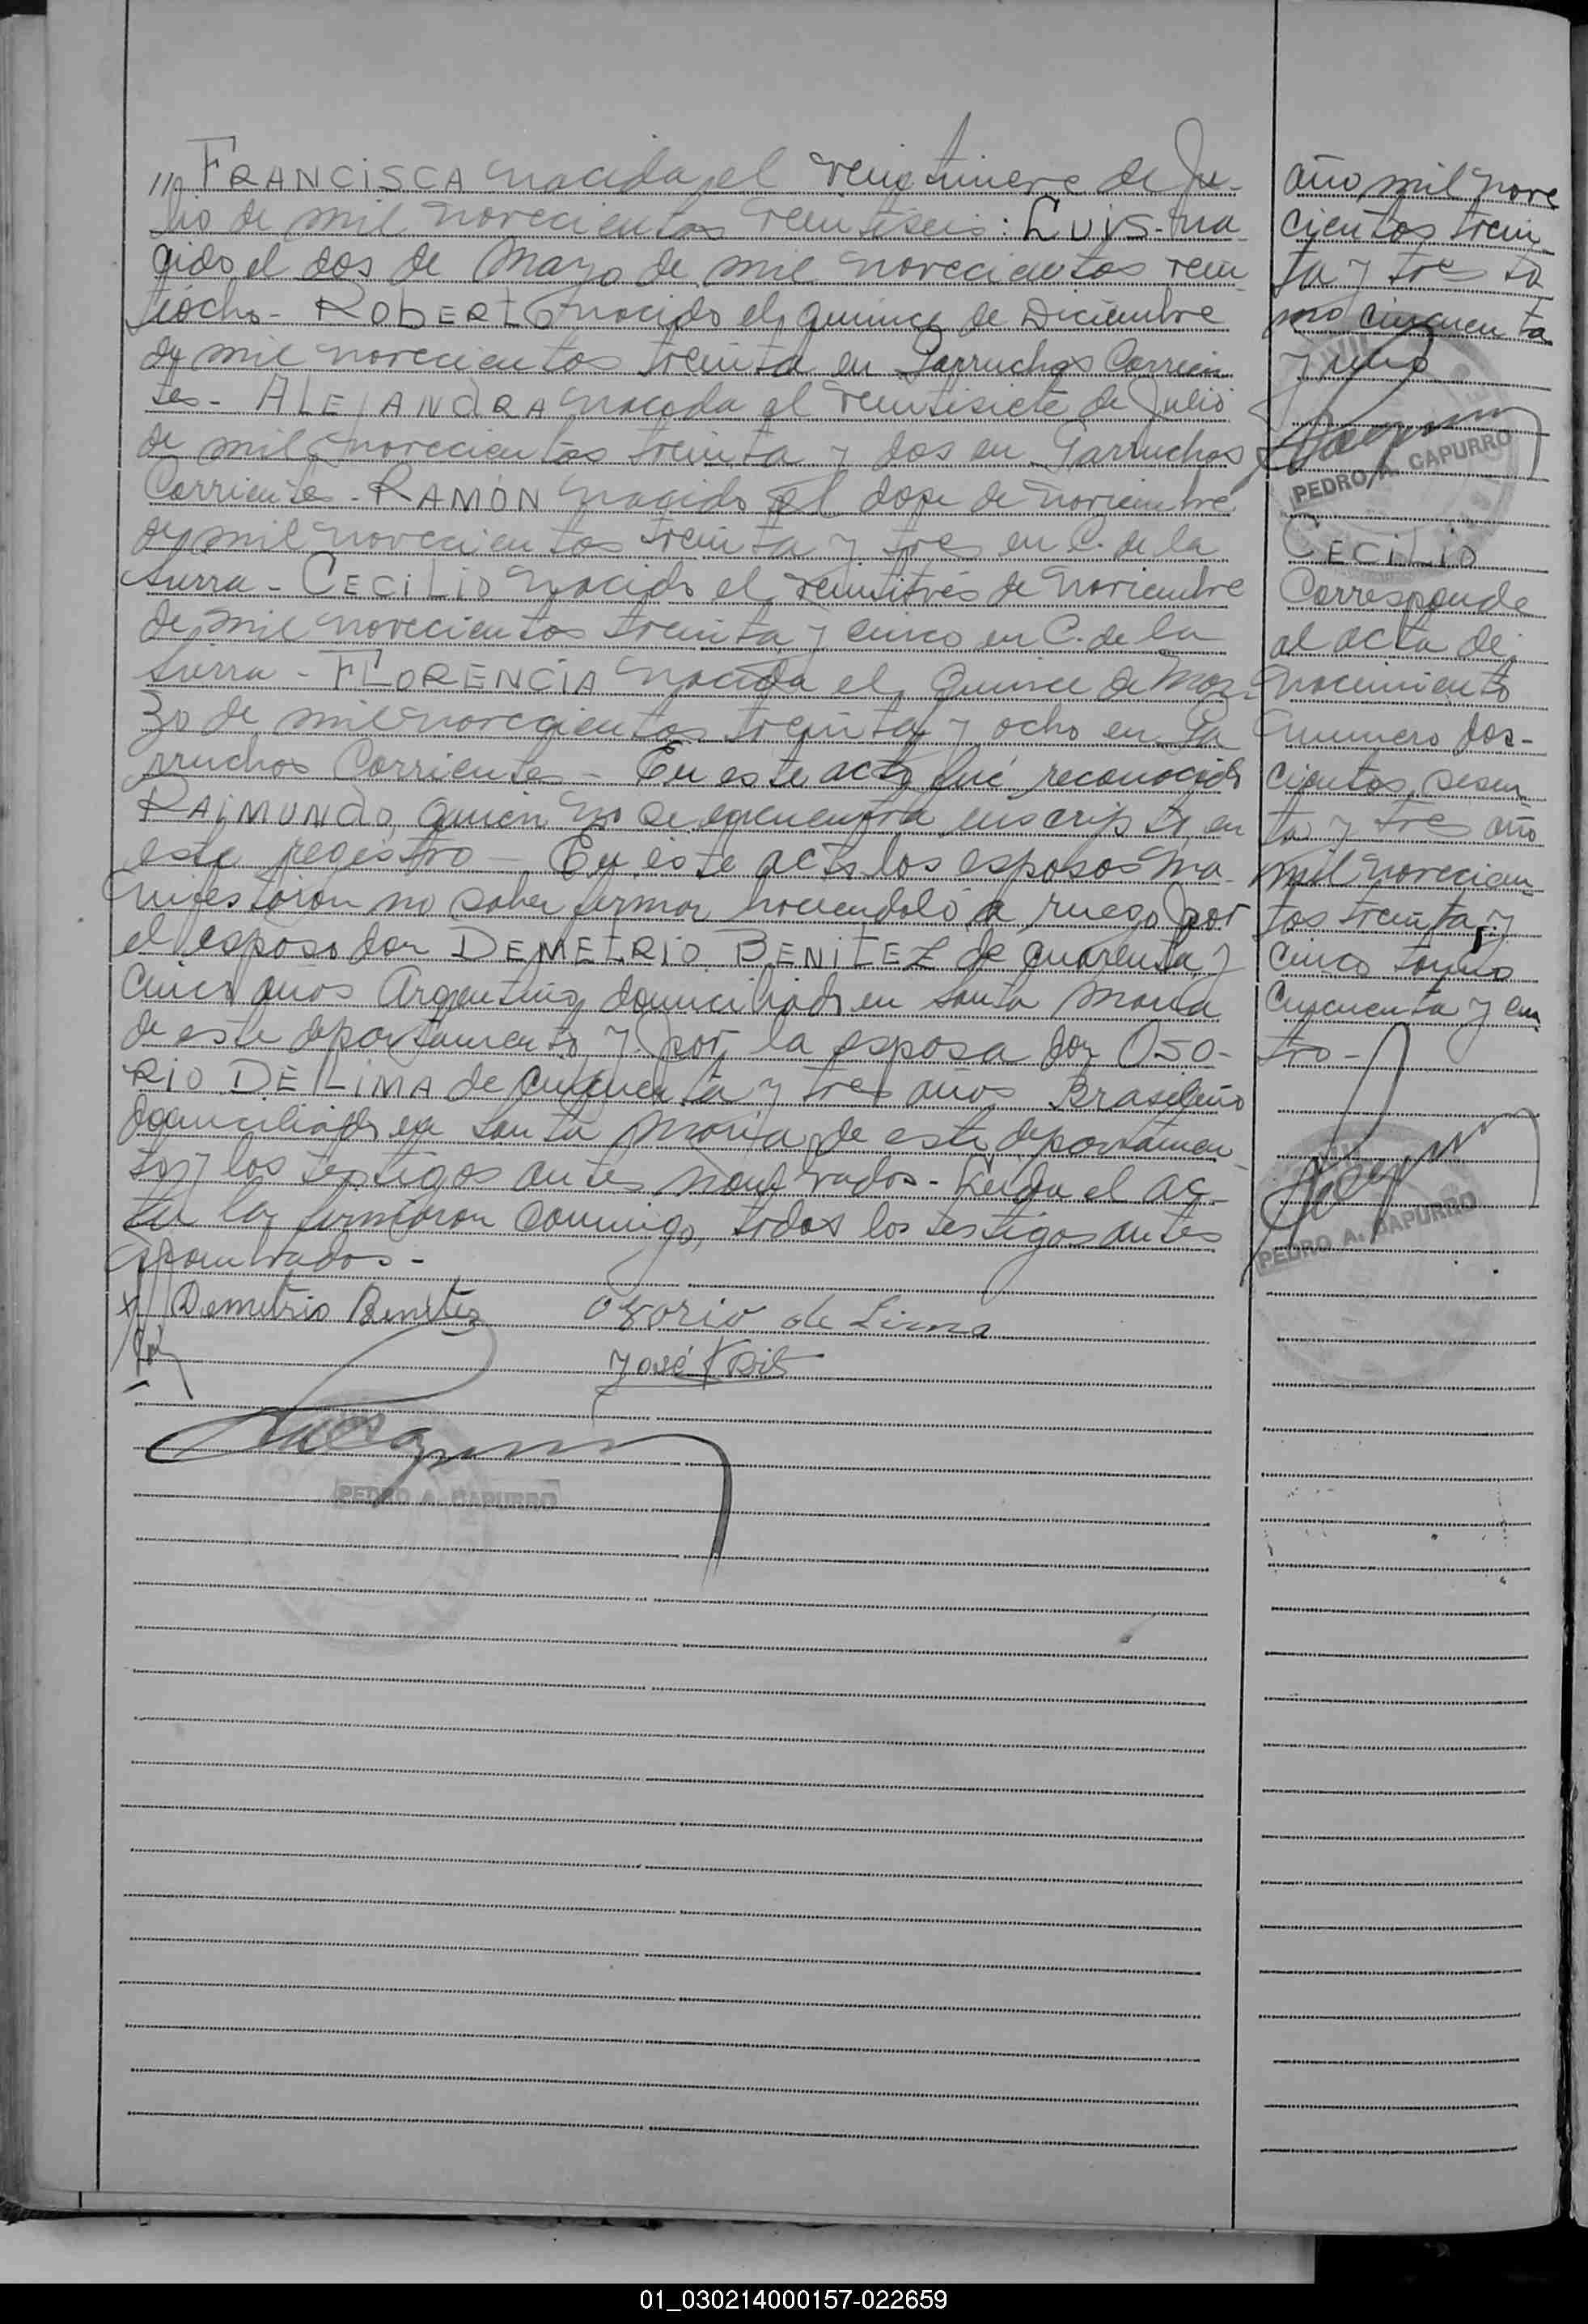 FRANCISCA nacida el veintinueve de Ju-
lio de mil novecientos veintiseis: LUIS- na-
cido el dos de Mayo de mil novecientos vein
tiocho- ROBERTO nacido el quince de Diciembre
de mil novecientos treinta en Garruchos Corrien
tes- ALEJANdRA nacida el veintisiete de Julio
de mil novecientos treinta y dos en Garruchos
Corrientes- RAMÓN nacido el doce de noviembre
de mil novecientos treinta y tres en C. de la
Sierra- CECiLiO nacido el veintitrés de noviembre
de mil novecientos treinta y cinco en C. de la
Sierra- FLORENCiA nacida el quince de Mar-
zo de mil novecientos treinta y ocho en Ga
rruchos Corrientes- En este acto fué reconocido
RAiMUNdO, quien no se encuentra inscripto en
este registro- En este acto los esposos ma-
nifestaron no saber firmar haciendolo a ruego por
el esposo don DEMETRiO BENiTEZ de cuarenta y
cinco años Argentino domiciliado en Santa Maria
de este departamento y por la esposa don OSO-
RiO DE LiMA de cincuenta y tres años Brasileño
domiciliado en Santa Maria de este departamen-
to y los testigos antes nombrados- Leida el ac-
ta la firmaron conmigo, todos los testigos antes
nombrados-
Demetrio Benitez Ozorio de Lima
José
PEDRO A. CAPURRO
año mil nove
cientos trein
ta y tres to
mo cincuenta
y uno
PEDRO A. CAPURRO
CECiLiO
Corresponde
al acta de
nacimiento
numero dos-
cientos sesen-
ta y tres año
mil novecien-
tos treinta y
cinco tomo
cincuenta y cua
tro-
PEDRO A. CAPURRO
01_030214000157-022659